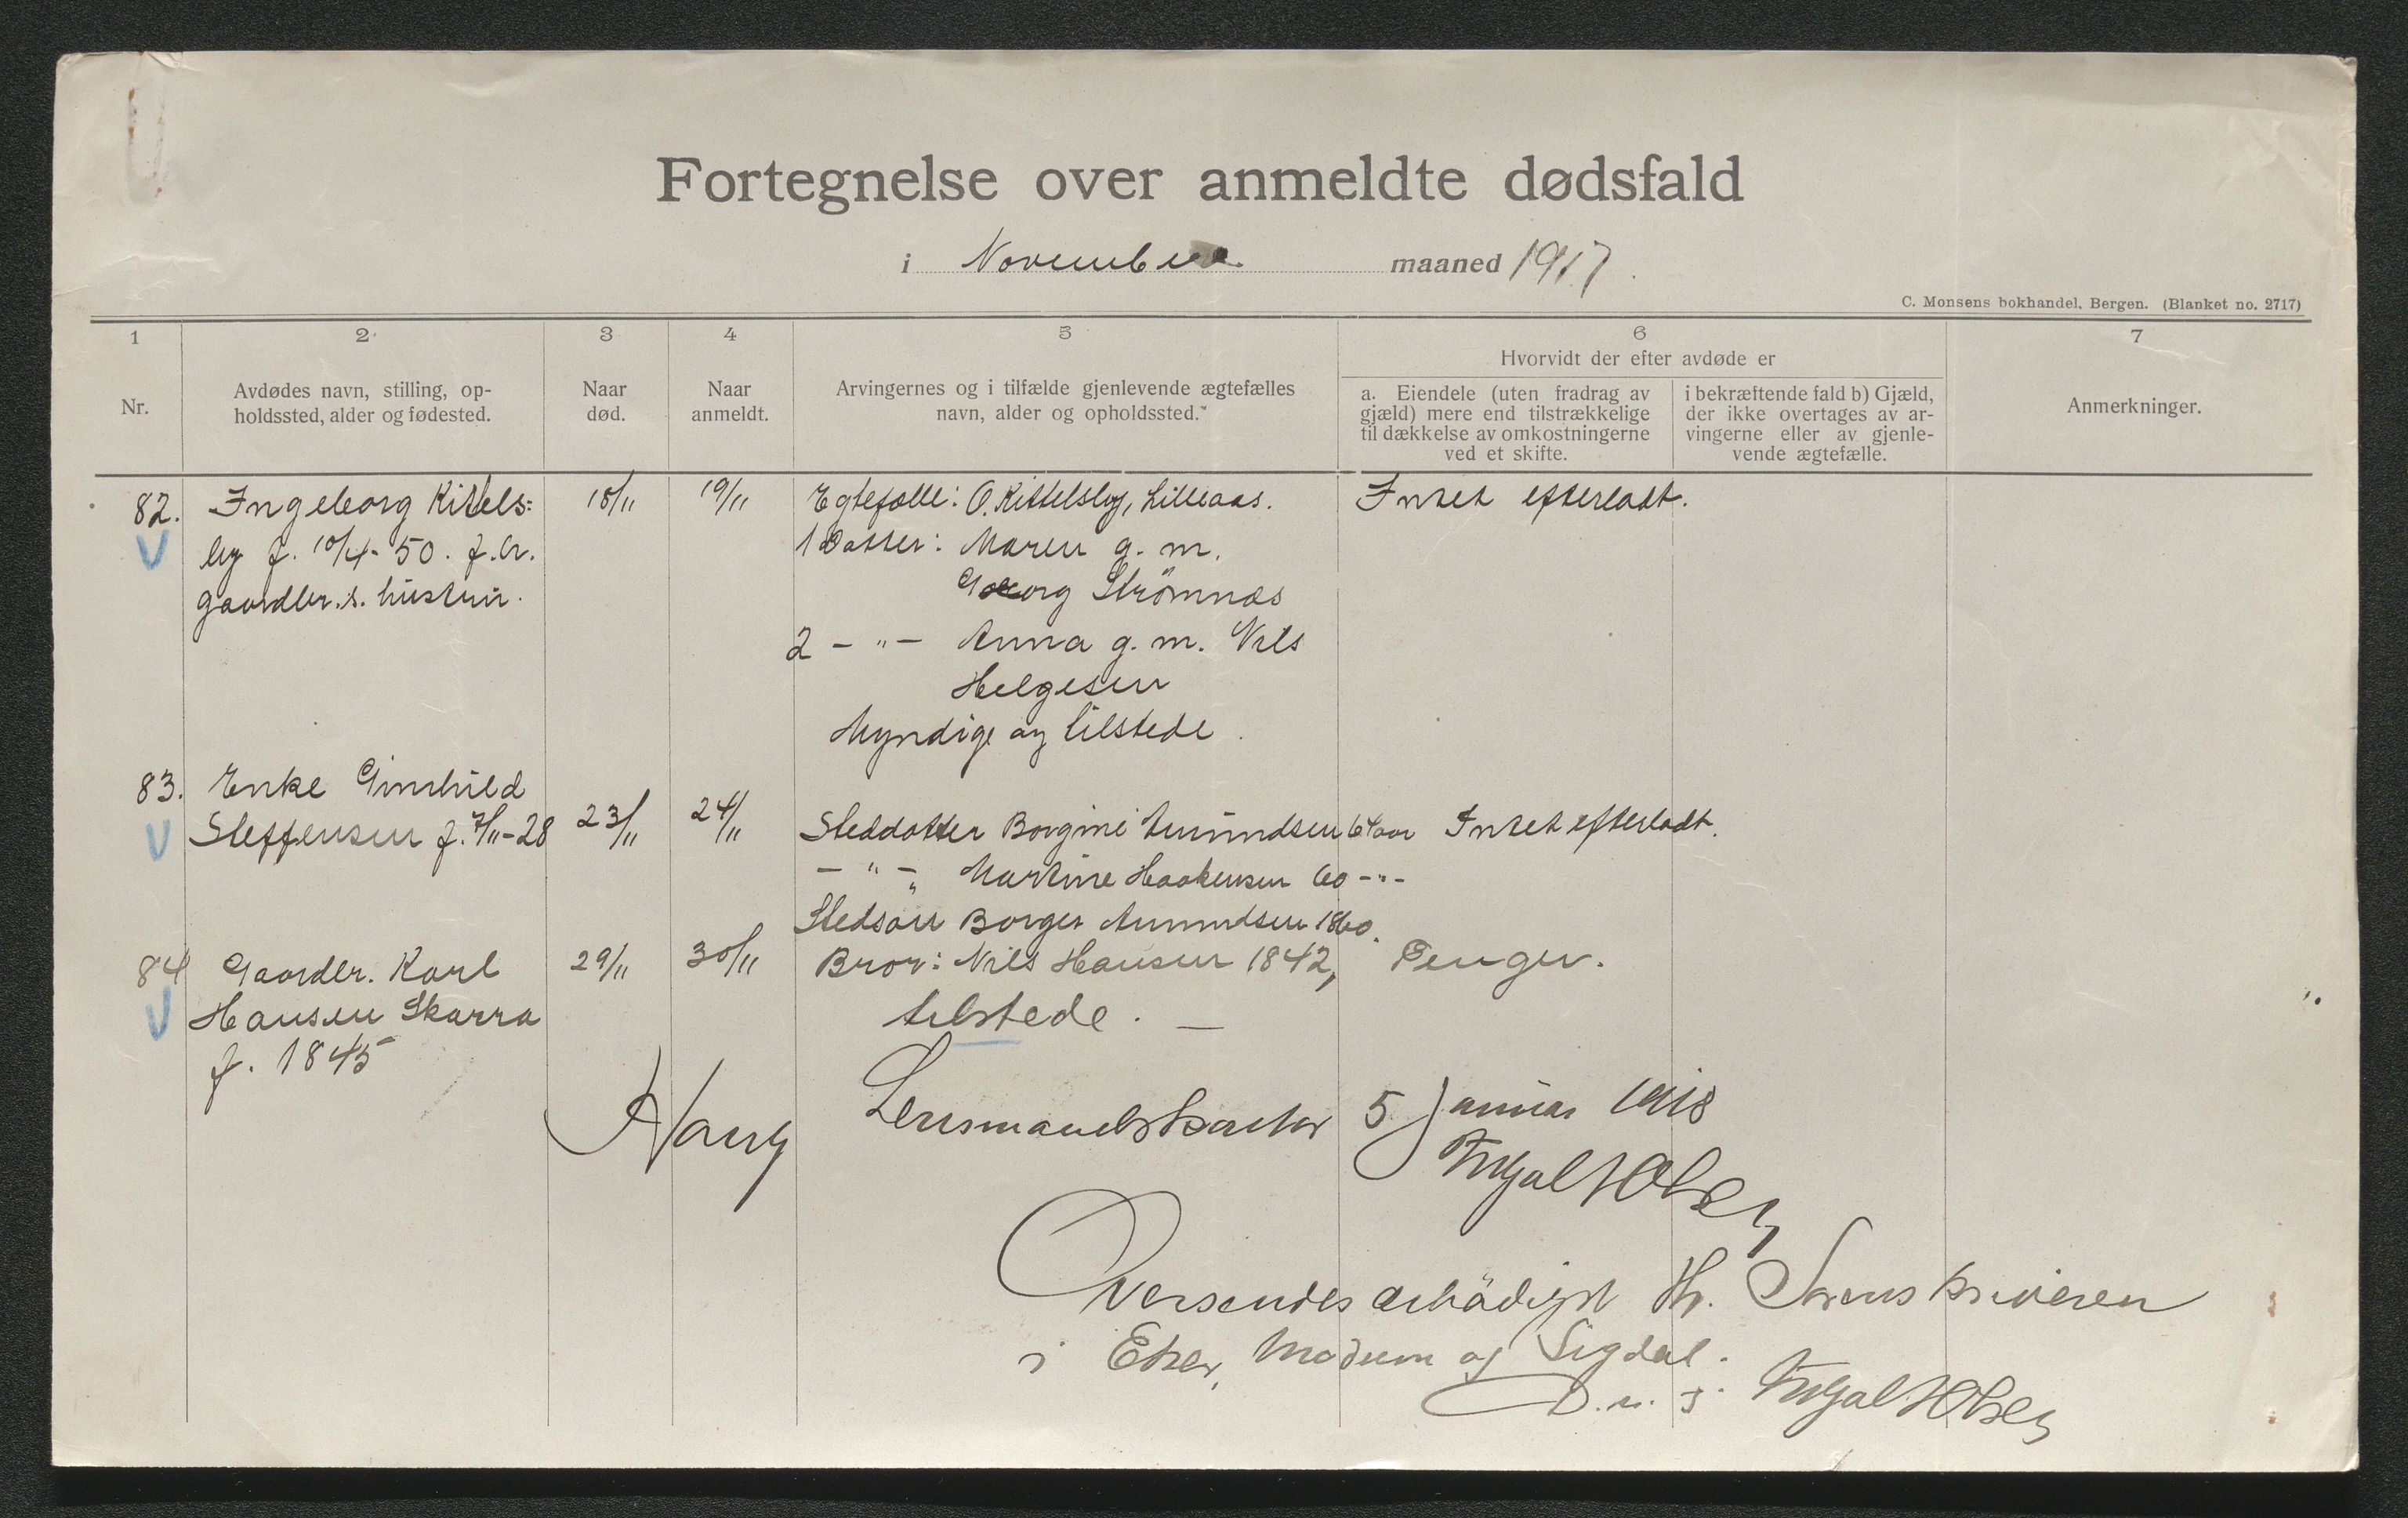 Fortegnelse over anmeldte dødsfald
i November maaned 1917.
C. Monsens bokhandel, Bergen. (Blanket no. 2717)
1 2 3 4 5 6 7
Nr.
Avdødes navn, stilling, op-
holdssted, alder og fødested.
Naar
død.
Naar
anmeldt.
Arvingernes og i tilfælde gjenlevende ægtefælles
navn, alder og opholdssted.
Hvorvidt der efter avdøde er
a. Eiendele (uten fradrag av
gjæld) mere end tilstrækkelige
til dækkelse av omkostningerne
ved et skifte.
i bekræftende fald b) Gjæld,
der ikke overtages av ar-
vingerne eller av gjenle-
vende ægtefælle.
Anmerkninger.
82. Ingeborg Kittels= 18/11 19/11 Egtefælle: O. Kittelsby, Lilleaas. Intet efterladt.
by f. 10/4-50. f.br. 1 Datter: Maren g. m.
gaardbr.s. hustru. Georg Strömnæs
2 - " - Anna g. m. Nils
Helgesen
Myndige og tilstede.
83. Enke Gunhild
Steffensen f. 7/11-28 23/11 24/11 Steddatter Borgine Amundsen 64 aar Intet efterladt.
- " - Martine Haakensen 60 - " -
Stedsøn Borger Amundsen 1860.
84 Gaardbr. Karl 29/11 30/11 Bror: Nils Hansen 1842, Penger.
Hansen Skarra tilstede. -
f. 1845
Haug Lensmandskontor 5 Januar 1918
Oversendes ærbödigst Hr. Sorenskriveren
i Eker, Modum og Sigdal.
D. u. s.